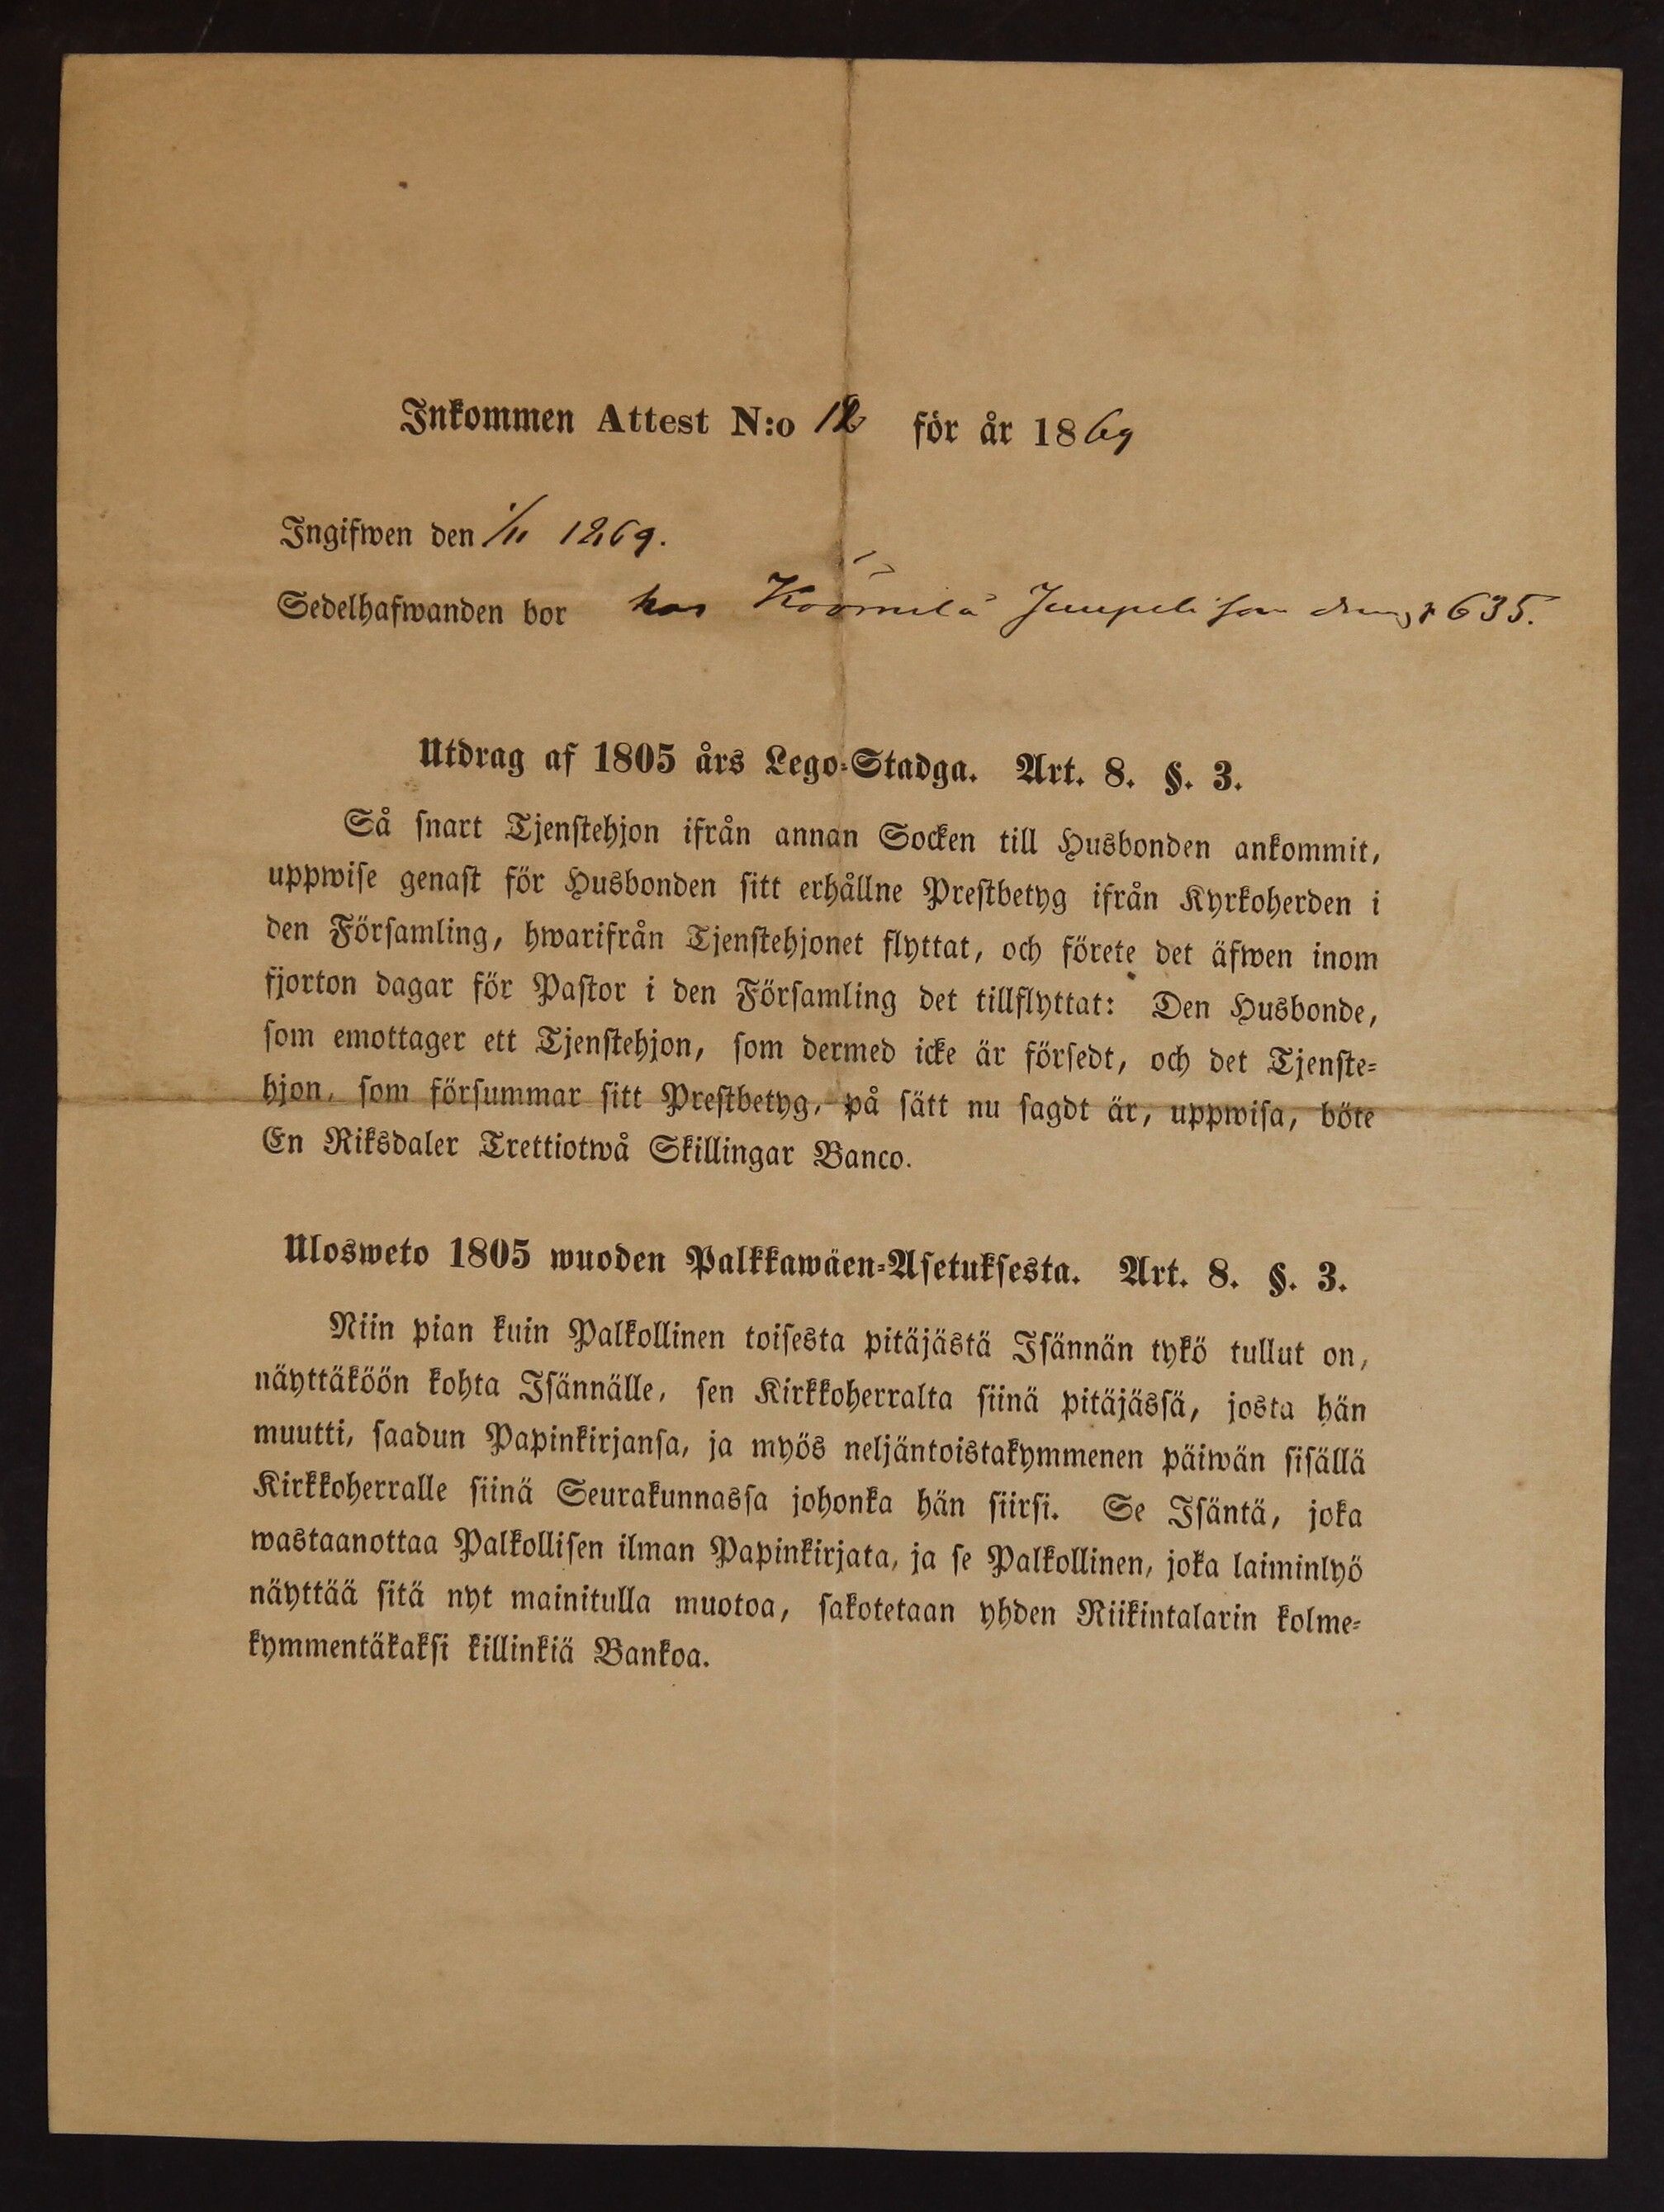 Inkommen Attest N:o 12 för år 1869
Ingifwen den 1/11 1869.
Sedelhafwanden bor hos som dräng p 635.
Utdrag af 1805 års Lego-Stadga. Art. 8. §. 3.
Så snart Tjenstehjon ifrån annan Socken till Husbonden ankommit,
uppwise genast för Husbonden sitt erhållne Prestbetyg ifrån Kyrkoherden i
den Församling, hwarifrån Tjenstehjonet flyttat, och förete det äfwen inom
fjorton dagar för Pastor i den Församling det tillflyttat: Den Husbonde,
som emottager ett Tjenstehjon, som dermed icke är försedt, och det Tjenste-
hjon, som försummar sitt Prestbetyg, på sätt nu sagdt är, uppwisa, böte
En Riksdaler Trettiotwå Skillingar Banco.
Ulosweto 1805 wuoden Palkkawäen-Asetuksesta. Art. 8. §. 3.
Niin pian kuin Palkollinen toisesta pitäjästä Isännän tykö tullut on,
näyttäköön kohta Isännälle, sen Kirkkoherralta siinä pitäjässä, josta hän
muutti, saadun Papinkirjansa, ja myös neljäntoistakymmenen päiwän sisällä
Kirkkoherralle siinä Seurakunnassa johonka hän siirsi. Se Isäntä, joka
wastaanottaa Palkollisen ilman Papinkirjata, ja se Palkollinen, joka laiminlyö
näyttää sitä nyt mainitulla muotoa, sakotetaan yhden Riikintalarin kolme-
kymmentäkaksi killinkiä Bankoa.